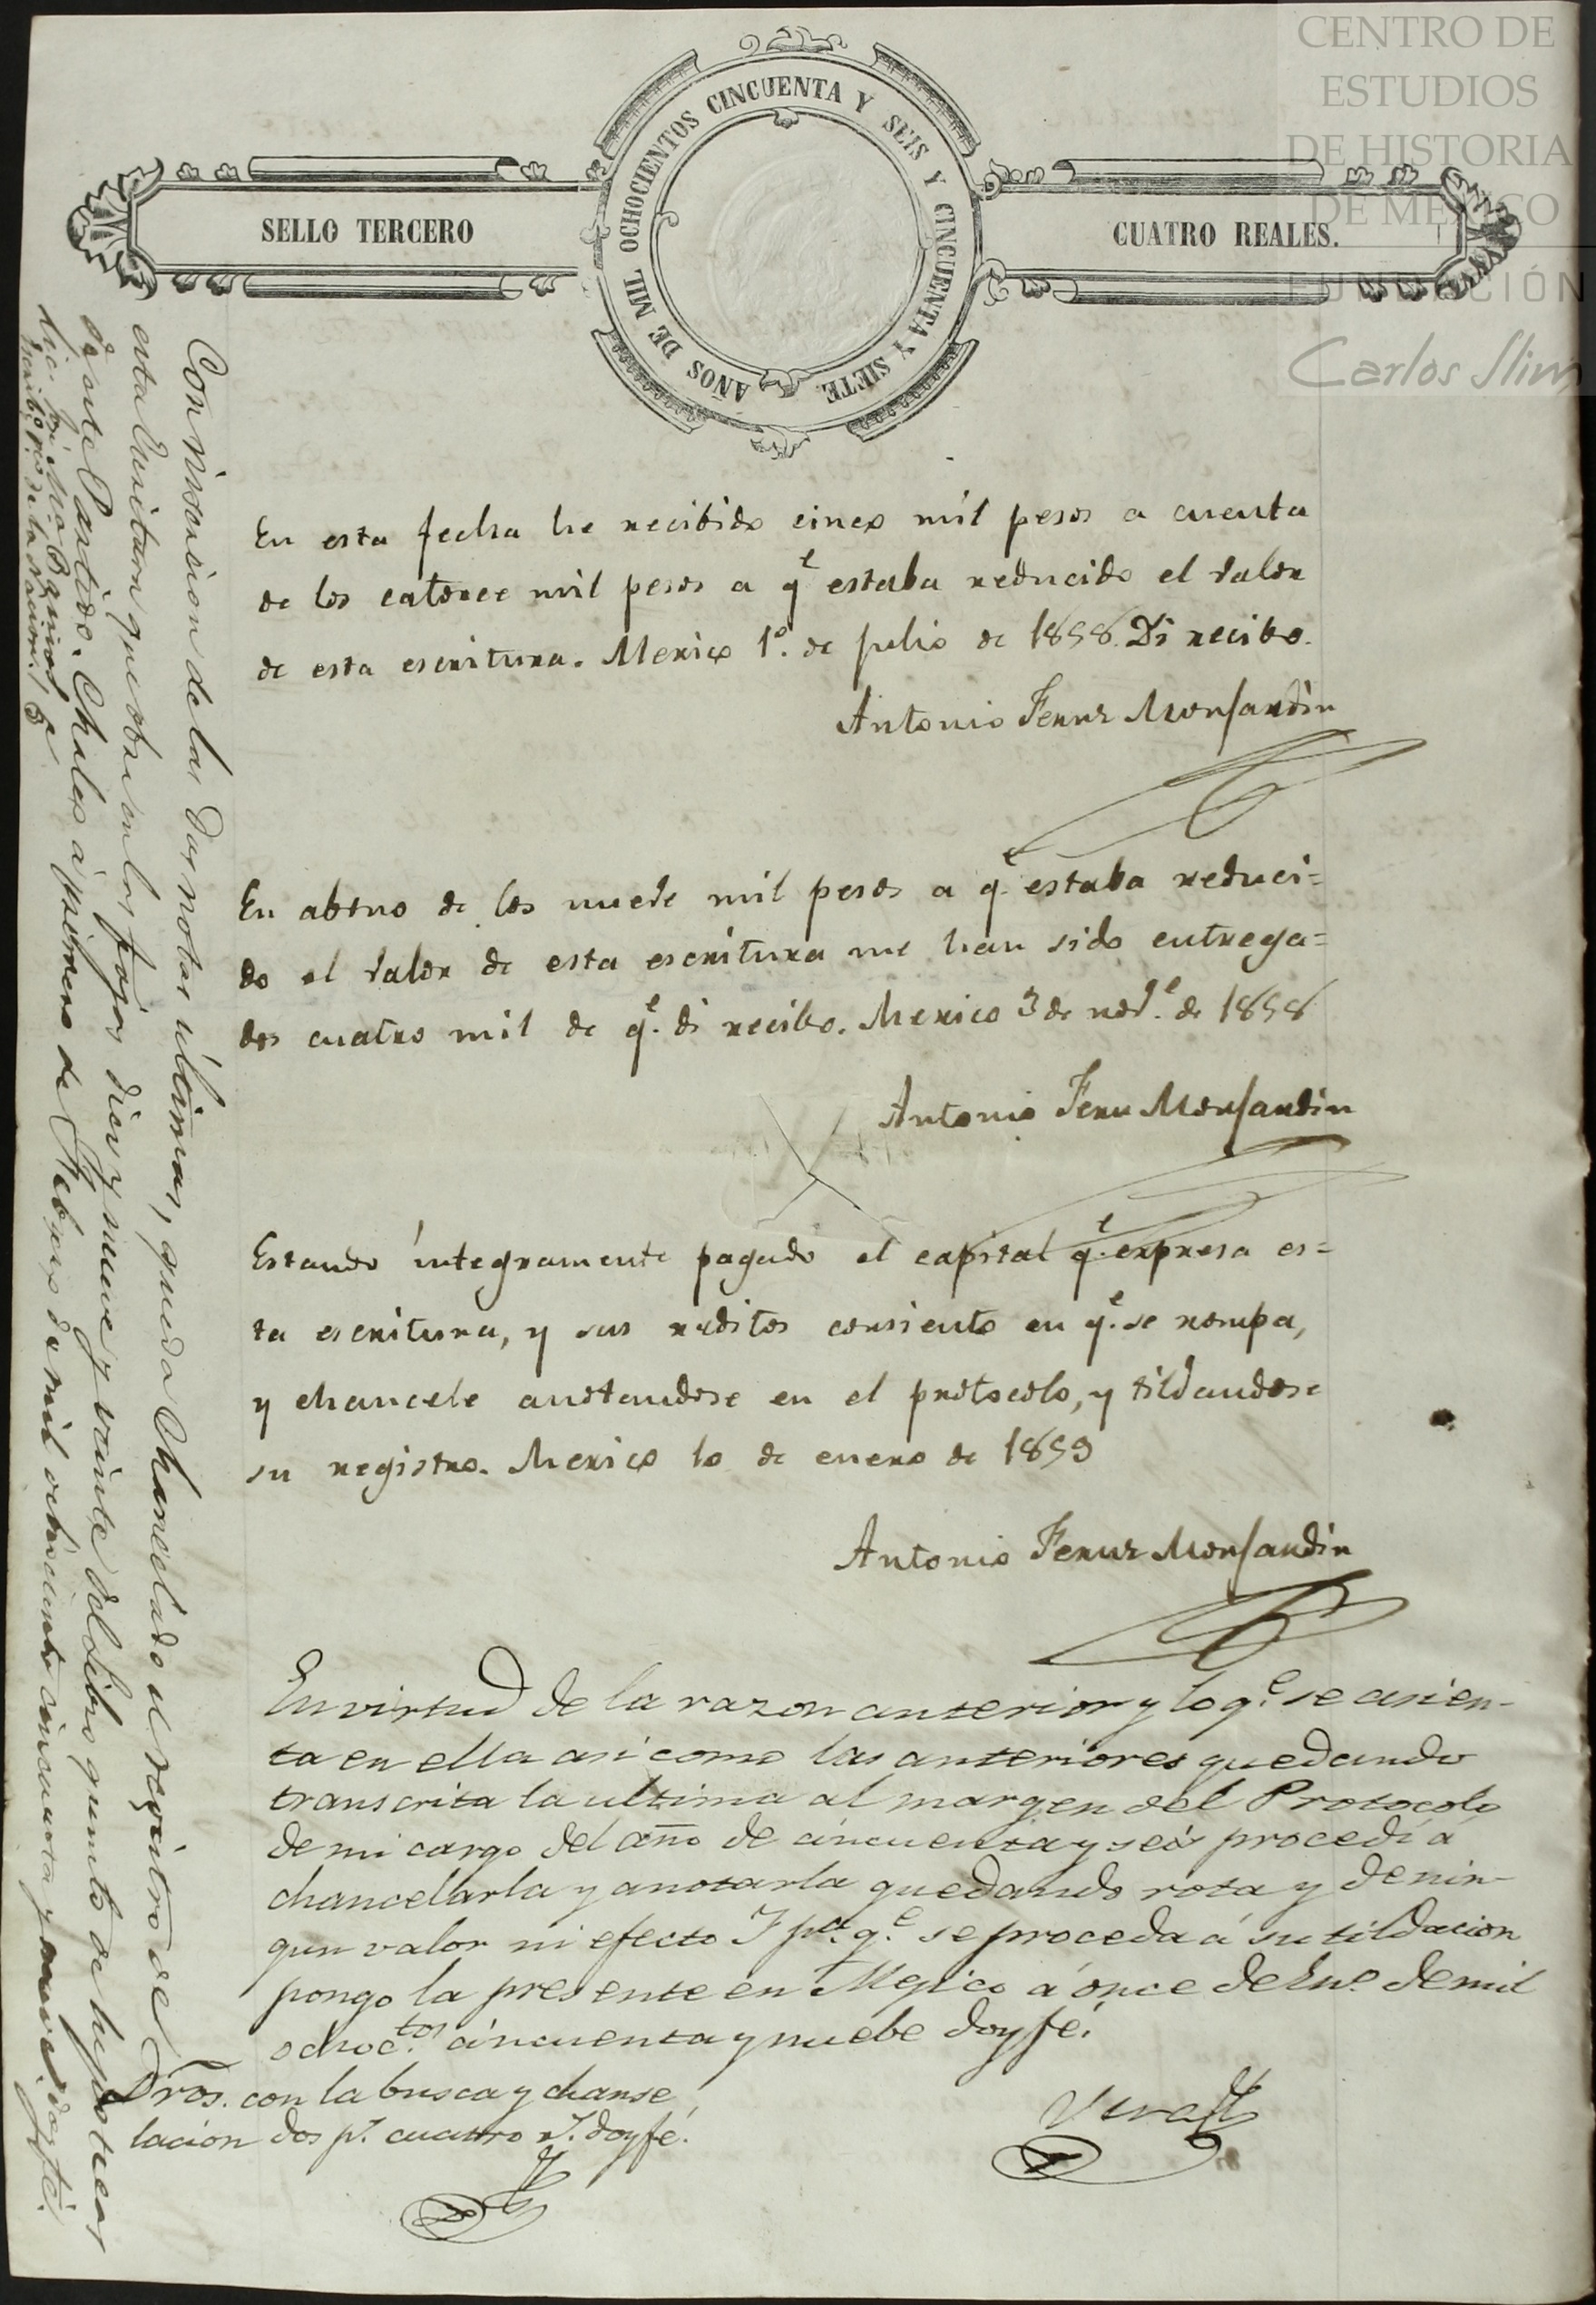 CENTRO DE
ESTUDIOS
DE HISTORIA
DE MÉXICO
FUNDACIÓN
Carlos Slim
SELLO TERCERO
AÑOS DE MIL OCHOCIENTOS CINCUENTA Y SEIS Y CINCUENTA Y SIETE.
CUATRO REALES.
En esta fecha he recibido cinco mil pesos a cuenta
de los catorce mil pesos a qe estaba reducido el valor
de esta escritura. Mexico 1º. de julio de 1858. Di recibo.
Antonio Ferns Monjardin
En abono de los nueve mil pesos a qe estaba reduci=
do el valor de esta escritura me han sido entrega=
dos cuatro mil de qe. di recibo. Mexico 3 de nove. de 1858
Antonio Fern Monjardin
Estando integramente pagado el capital qe. expresa es=
ta escritura, y sus reditos consiento en qe. se rompa,
y chancele anotandose en el protocolo, y tildandose
su registro. Mexico 10 de enero de 1859
Antonio Ferns Monjardin
En virtud de la razon anterior y lo qe. se asien-
ta en ella asi como las anteriores quedando
transcrita la ultima al margen del Protocolo
de mi cargo del año de cincuenta y seis procedí á
chancelarla y anotarla quedando rota y de nin-
gun valor ni efecto Y pa. qe. se proceda á su tildacion
pongo la presente en Mejico á once de Eno. de mil
ochoctos. cincuenta y nuebe doy fé.
Dros. con la busca y chanse
lacion dos ps. cuatro rs. doy fé.
Con incersion de las dos notas últimas, queda chancelado el registro de
esta Escritura que obra en las fojas diez y nueve y veinte del Libro quinto de hipotecas
de este Partido. Chalco á primero de Febrero de mil ochociento cincuenta y nueve. doy fé.